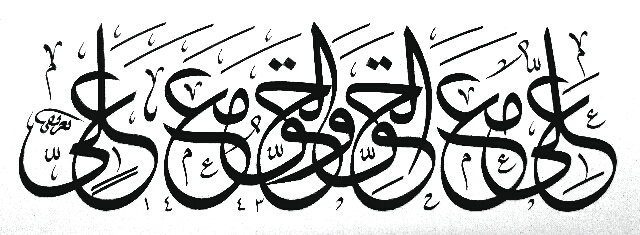 علي مع الحق والحق مع علي
١٤٤٣